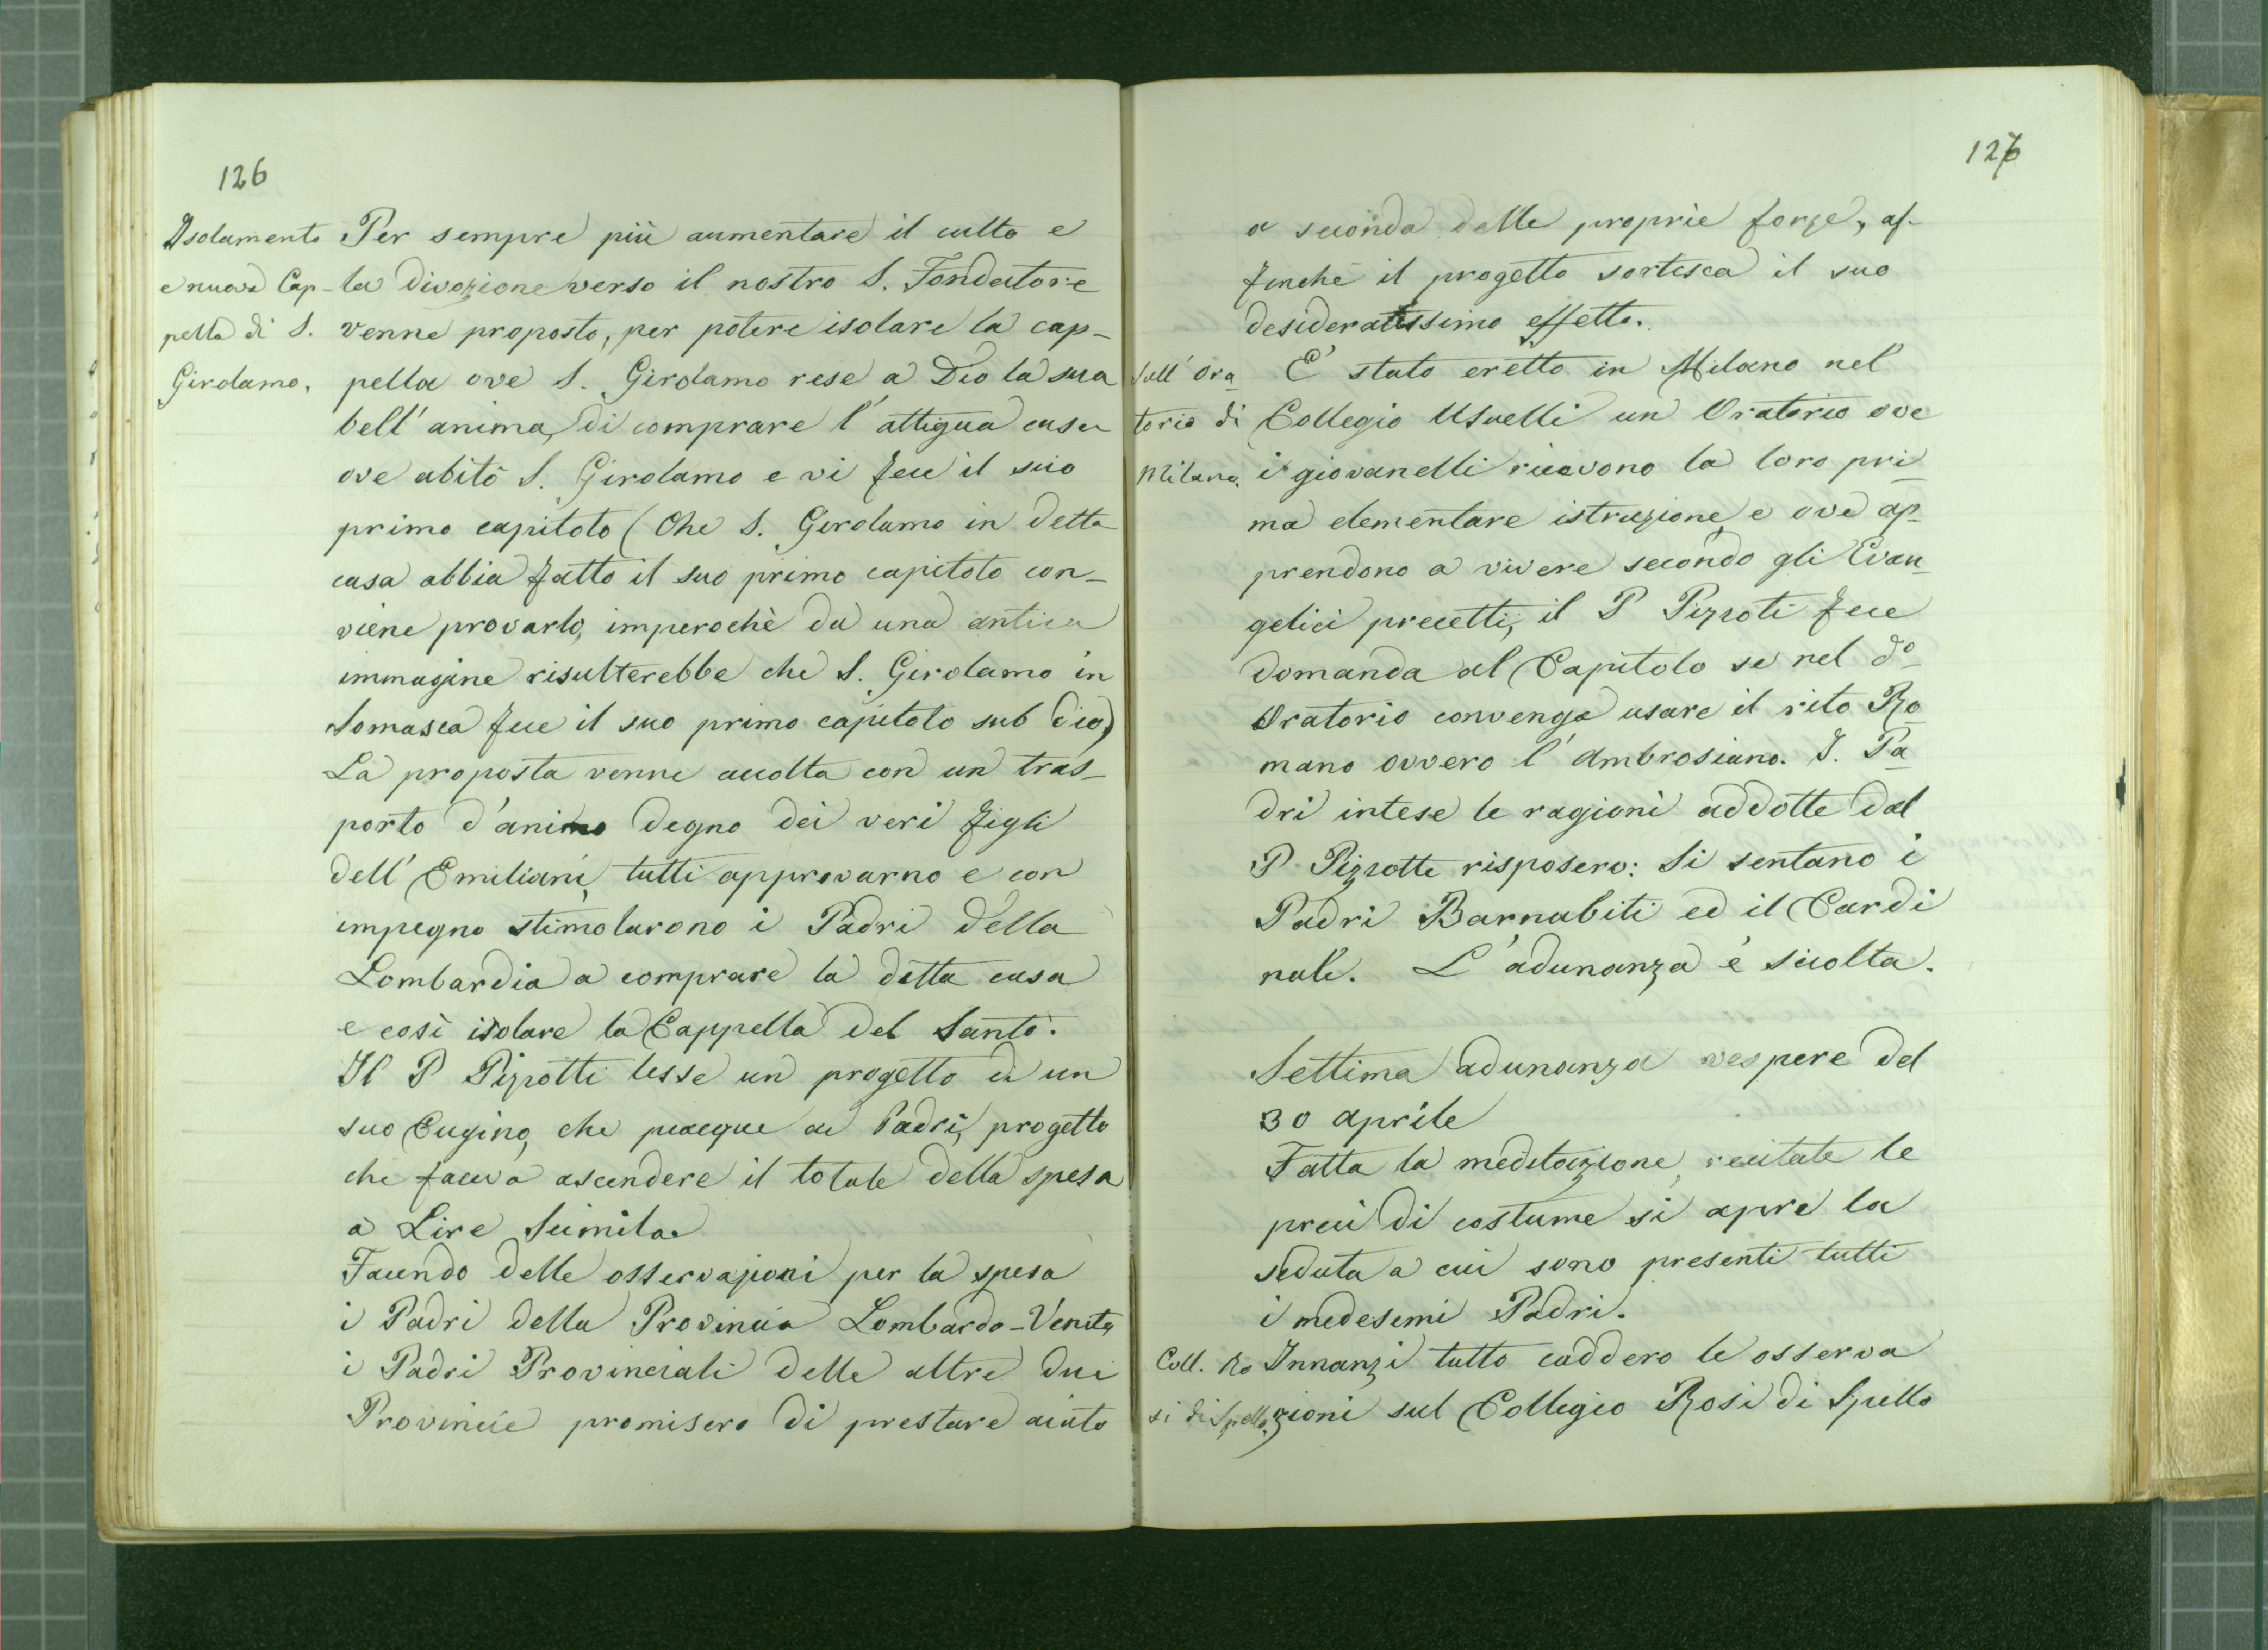 126
Isolamento
e nuova Cap-
pella di S.
Girolamo.
Per sempre più aumentare il culto e
la divozione verso il nostro S. Fondatore
venne proposto, per potere isolare la cap-
pella ove S. Girolamo rese a Dio la sua
bell'anima, di comprare l'attigua casa
ove abitò S. Girolamo e vi fece il suo
primo capitolo (Che S. Girolamo in detta
casa abbia fatto il suo primo capitolo con-
viene provarlo, imperochè da una antica
immagine risulterebbe che S. Girolamo in
Somasca fece il suo primo capitolo sub dio)
La proposta venne accolta con un tras-
porto d'animo degno dei veri figli
dell'Emiliani, tutti approvarno e con
impegno stimolarono i Padri della
Lombardia a comprare la detta casa
e così isolare la Cappella del Santo.
Il P Pizzotti lesse un progetto di un
suo Cugino, che piacque ai Padri, progetto
che faceva ascendere il totale della spesa
a Lire Seimila
Facendo delle osservazioni per la spesa
i Padri della Provincia Lombardo-Veneta
i Padri Provinciali delle altre due
Provincie promisero di prestare aiuto
127
a seconda delle proprie forze, af-
finchè il progetto sortisca il suo
desideratissimo effetto.
Sull' Ora
torio di
Milano.
E' stato eretto in Milano nel
Collegio Usuelli un Oratorio ove
i giovanelli ricevono la loro pri
ma elementare istruzione, e ove ap-
prendono a vivere secondo gli Evan-
gelici precetti; il P Pizzoti fece
domanda al Capitolo se nel do
Oratorio convenga usare il rito Ro
mano ovvero l'Ambrosiano. I. Pa
dri intese le ragioni addotte dal
P Pizzotti risposero: Si sentano i
Padri Barnabiti ed il Cardi
nale. L'adunanza è sciolta.
Settima adunanza vespere del
30 aprile
Fatta la meditazione, recitate le
preci di costume si apre la
seduta a cui sono presenti tutti
i medesimi Padri.
Coll. Ro
si di Spello.
Innanzi tutto caddero le osserva
zioni sul Collegio Rosi di Spello